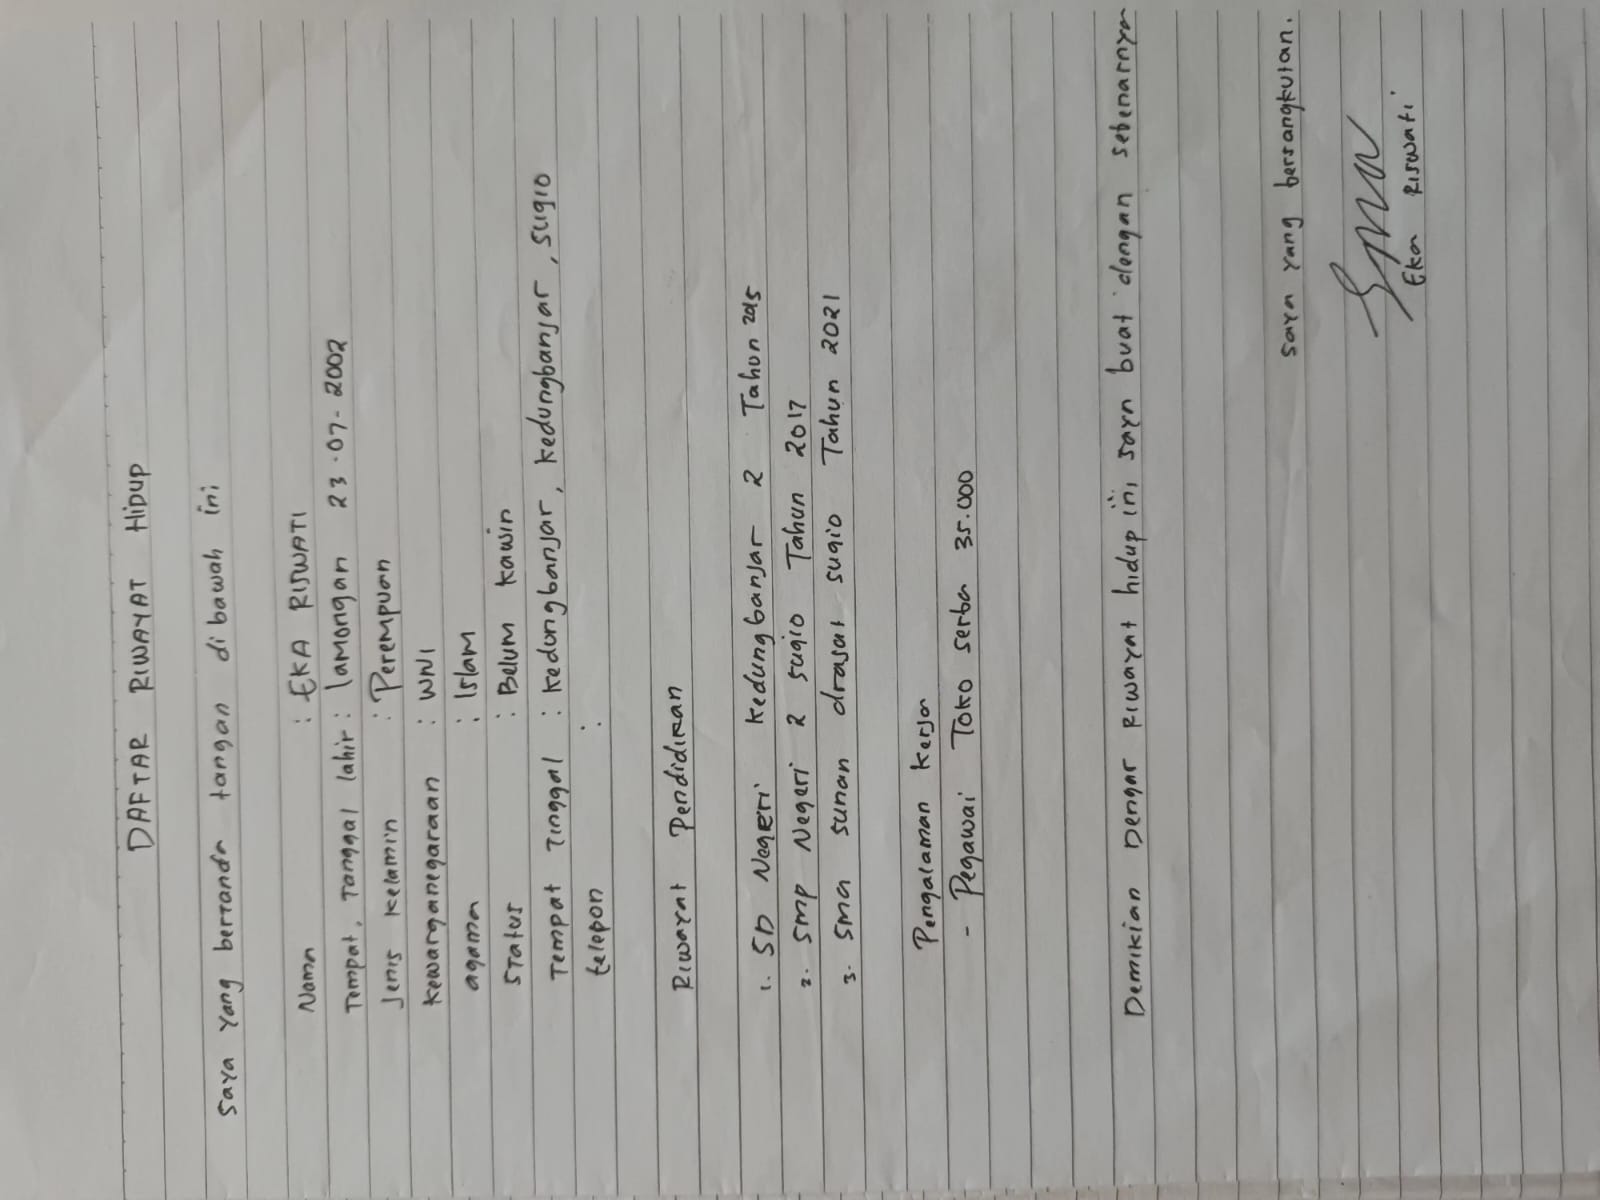 DAFTAR RIWAYAT HIDUP
saya yang bertanda tangan di bawah ini
Nama : EKA RISWATI
Tempat, Tanggal lahir : lamongan 23-07-2002
Jenis Kelamin : Perempuan
Kewarganegaraan : WNI
agama : Islam
Status : Belum Kawin
Tempat Tinggal : Kedungbanjar, Kedungbanjar, sugio
telepon :
Riwayat Pendidikan
1. SD Negeri Kedungbanjar 2 Tahun 2015
2. smp Negeri 2 sugio Tahun 2017
3. sma sunan drajat sugio Tahun 2021
Pengalaman Kerja
- Pegawai Toko serba 35.000
Demikian Dengar Riwayat hidup ini saya buat dengan sebenarnya
saya yang bersangkutan.
Eka Riswati